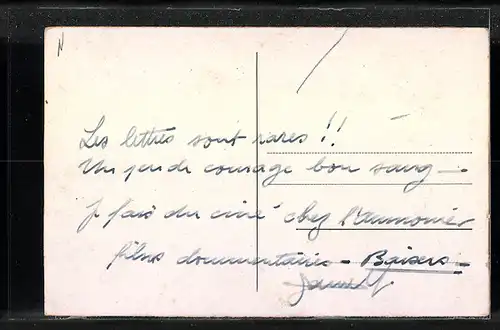 Les lettres sont rares !!
Un peu de courage bon sang —
Je fais du ciné chez l'aumonier
films documentaires – Baisers –